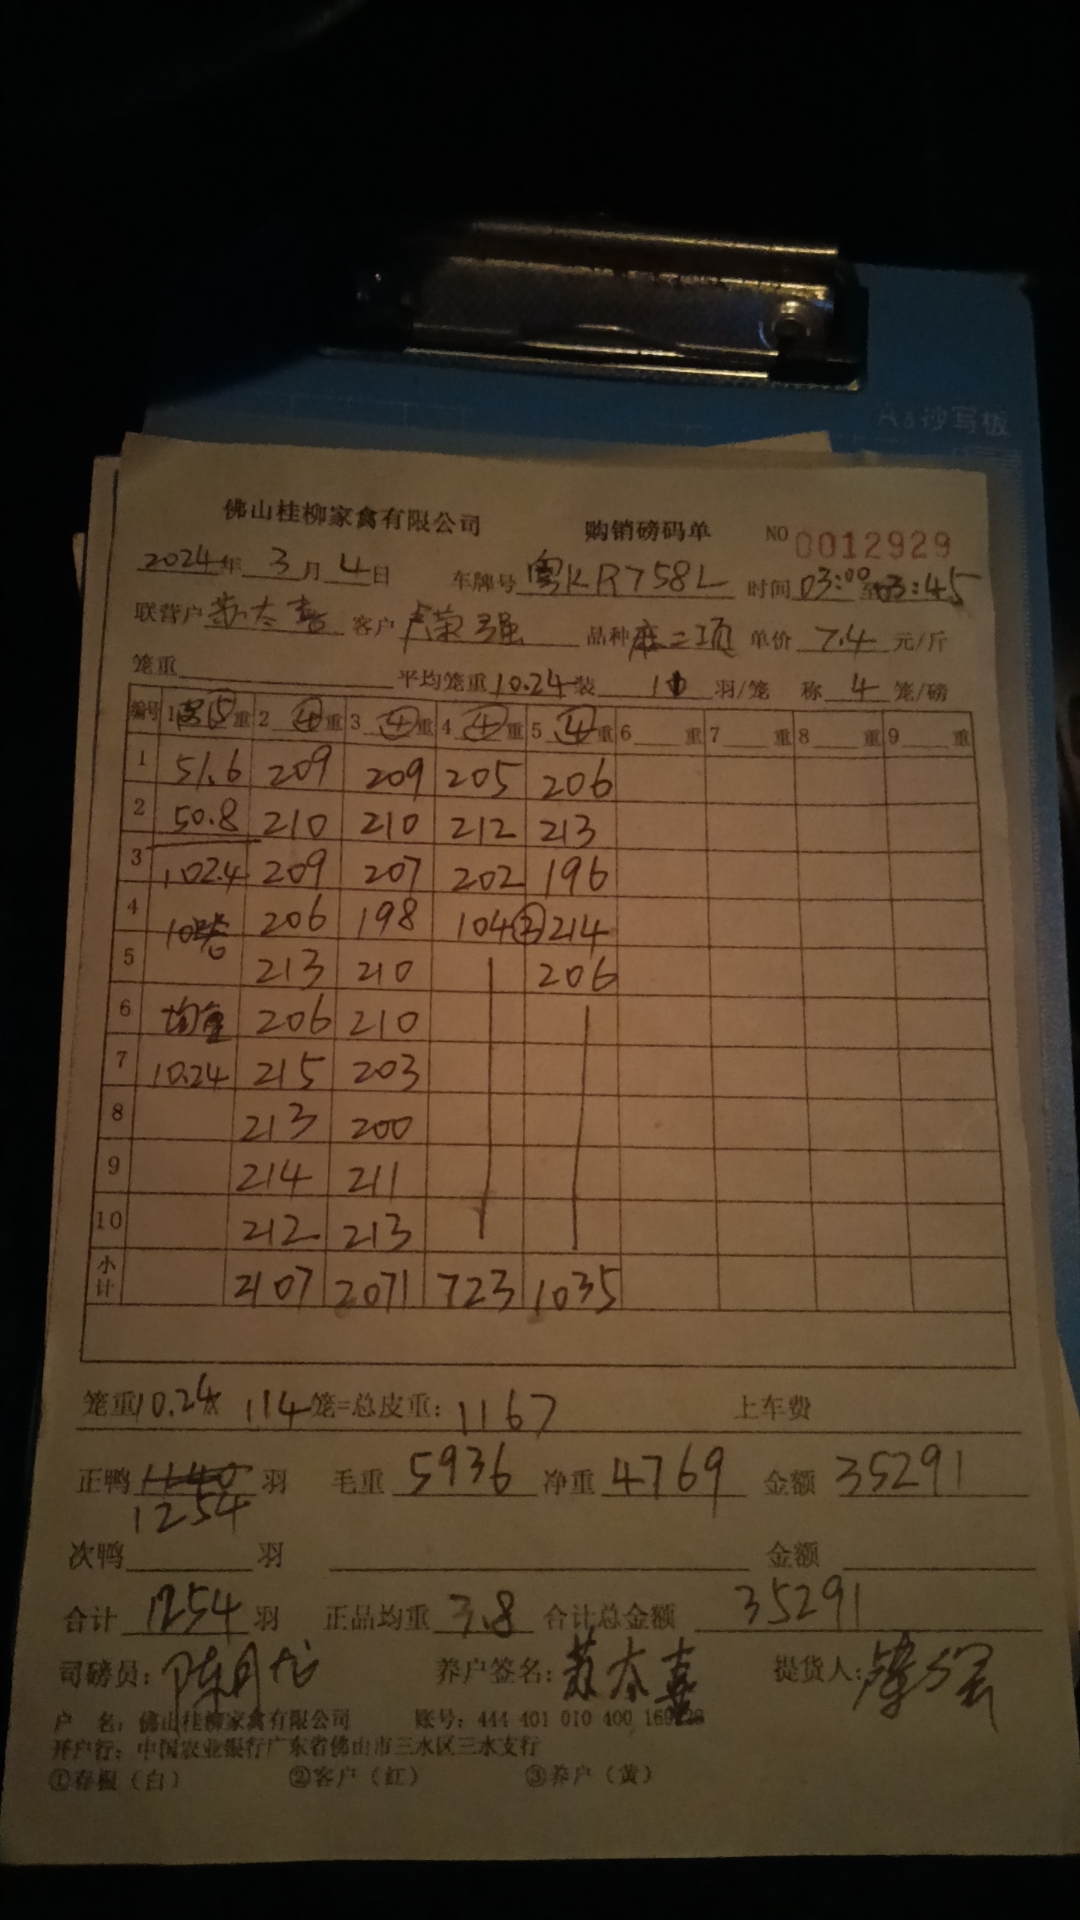 A3抄写板
佛山桂柳家禽有限公司 购销磅码单 NO 0012929
2024年 3月 4日 车牌号 粤KR758L 时间 03:00至03:45
联营户 苏太喜 客户 卢荣强 品种 麻二项 单价 7.4 元/斤
笼重 平均笼重 10.24 装 11 羽/笼 称 4 笼/磅
编号 1 ⑤ 重 2 ④ 重 3 ④ 重 4 ④ 重 5 ④ 重 6 重 7 重 8 重 9 重
1 51.6 209 209 205 206
2 50.8 210 210 212 213
3 102.4 209 207 202 196
4 10笼 206 198 104② 214
5 213 210 206
6 均重 206 210
7 10.24 215 203
8 213 200
9 214 211
10 212 213
小计 2107 2071 723 1035
笼重 10.24x 114 笼=总皮重: 1167 上车费
正鸭 1140 羽 毛重 5936 净重 4769 金额 35291
1254
次鸭 羽 金额
合计 1254 羽 正品均重 3.8 合计总金额 35291
司磅员: 陈月龙 养户签名: 苏太喜 提货人:
户 名: 佛山桂柳家禽有限公司 账号: 444 401 010 400 169
开户行: 中国农业银行广东省佛山市三水区三水支行
①存根（白） ②客户（红） ③养户（黄）